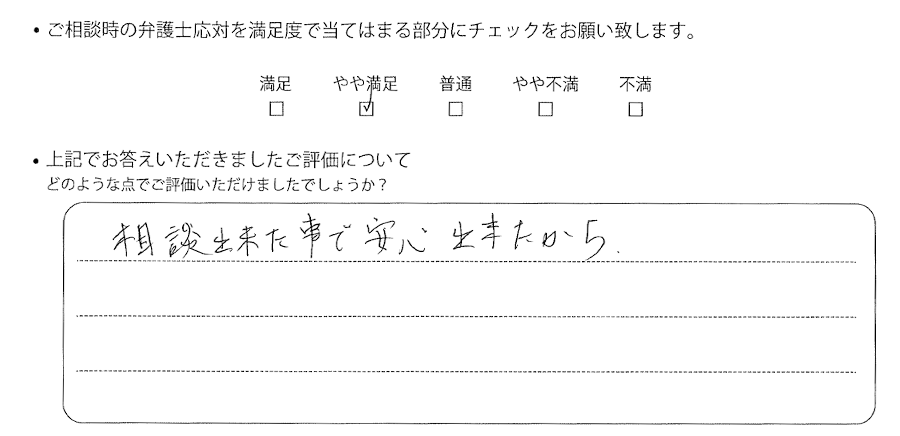 ・ご相談時の弁護士応対を満足度で当てはまる部分にチェックをお願い致します。
満足 やや満足 普通 やや不満 不満
□ ☑ □ □ □
・上記でお答えいただきましたご評価について
どのような点でご評価いただけましたでしょうか？
相談出来た事で安心出来たから.